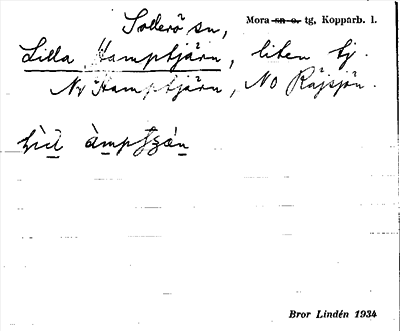 Sollerö sn,
Mora sn o. tg, Kopparb. l.
Lilla Hamptjärn, liten tj.
Nv Hamptjärn, NO Råsjön.
Bror Lindén 1934